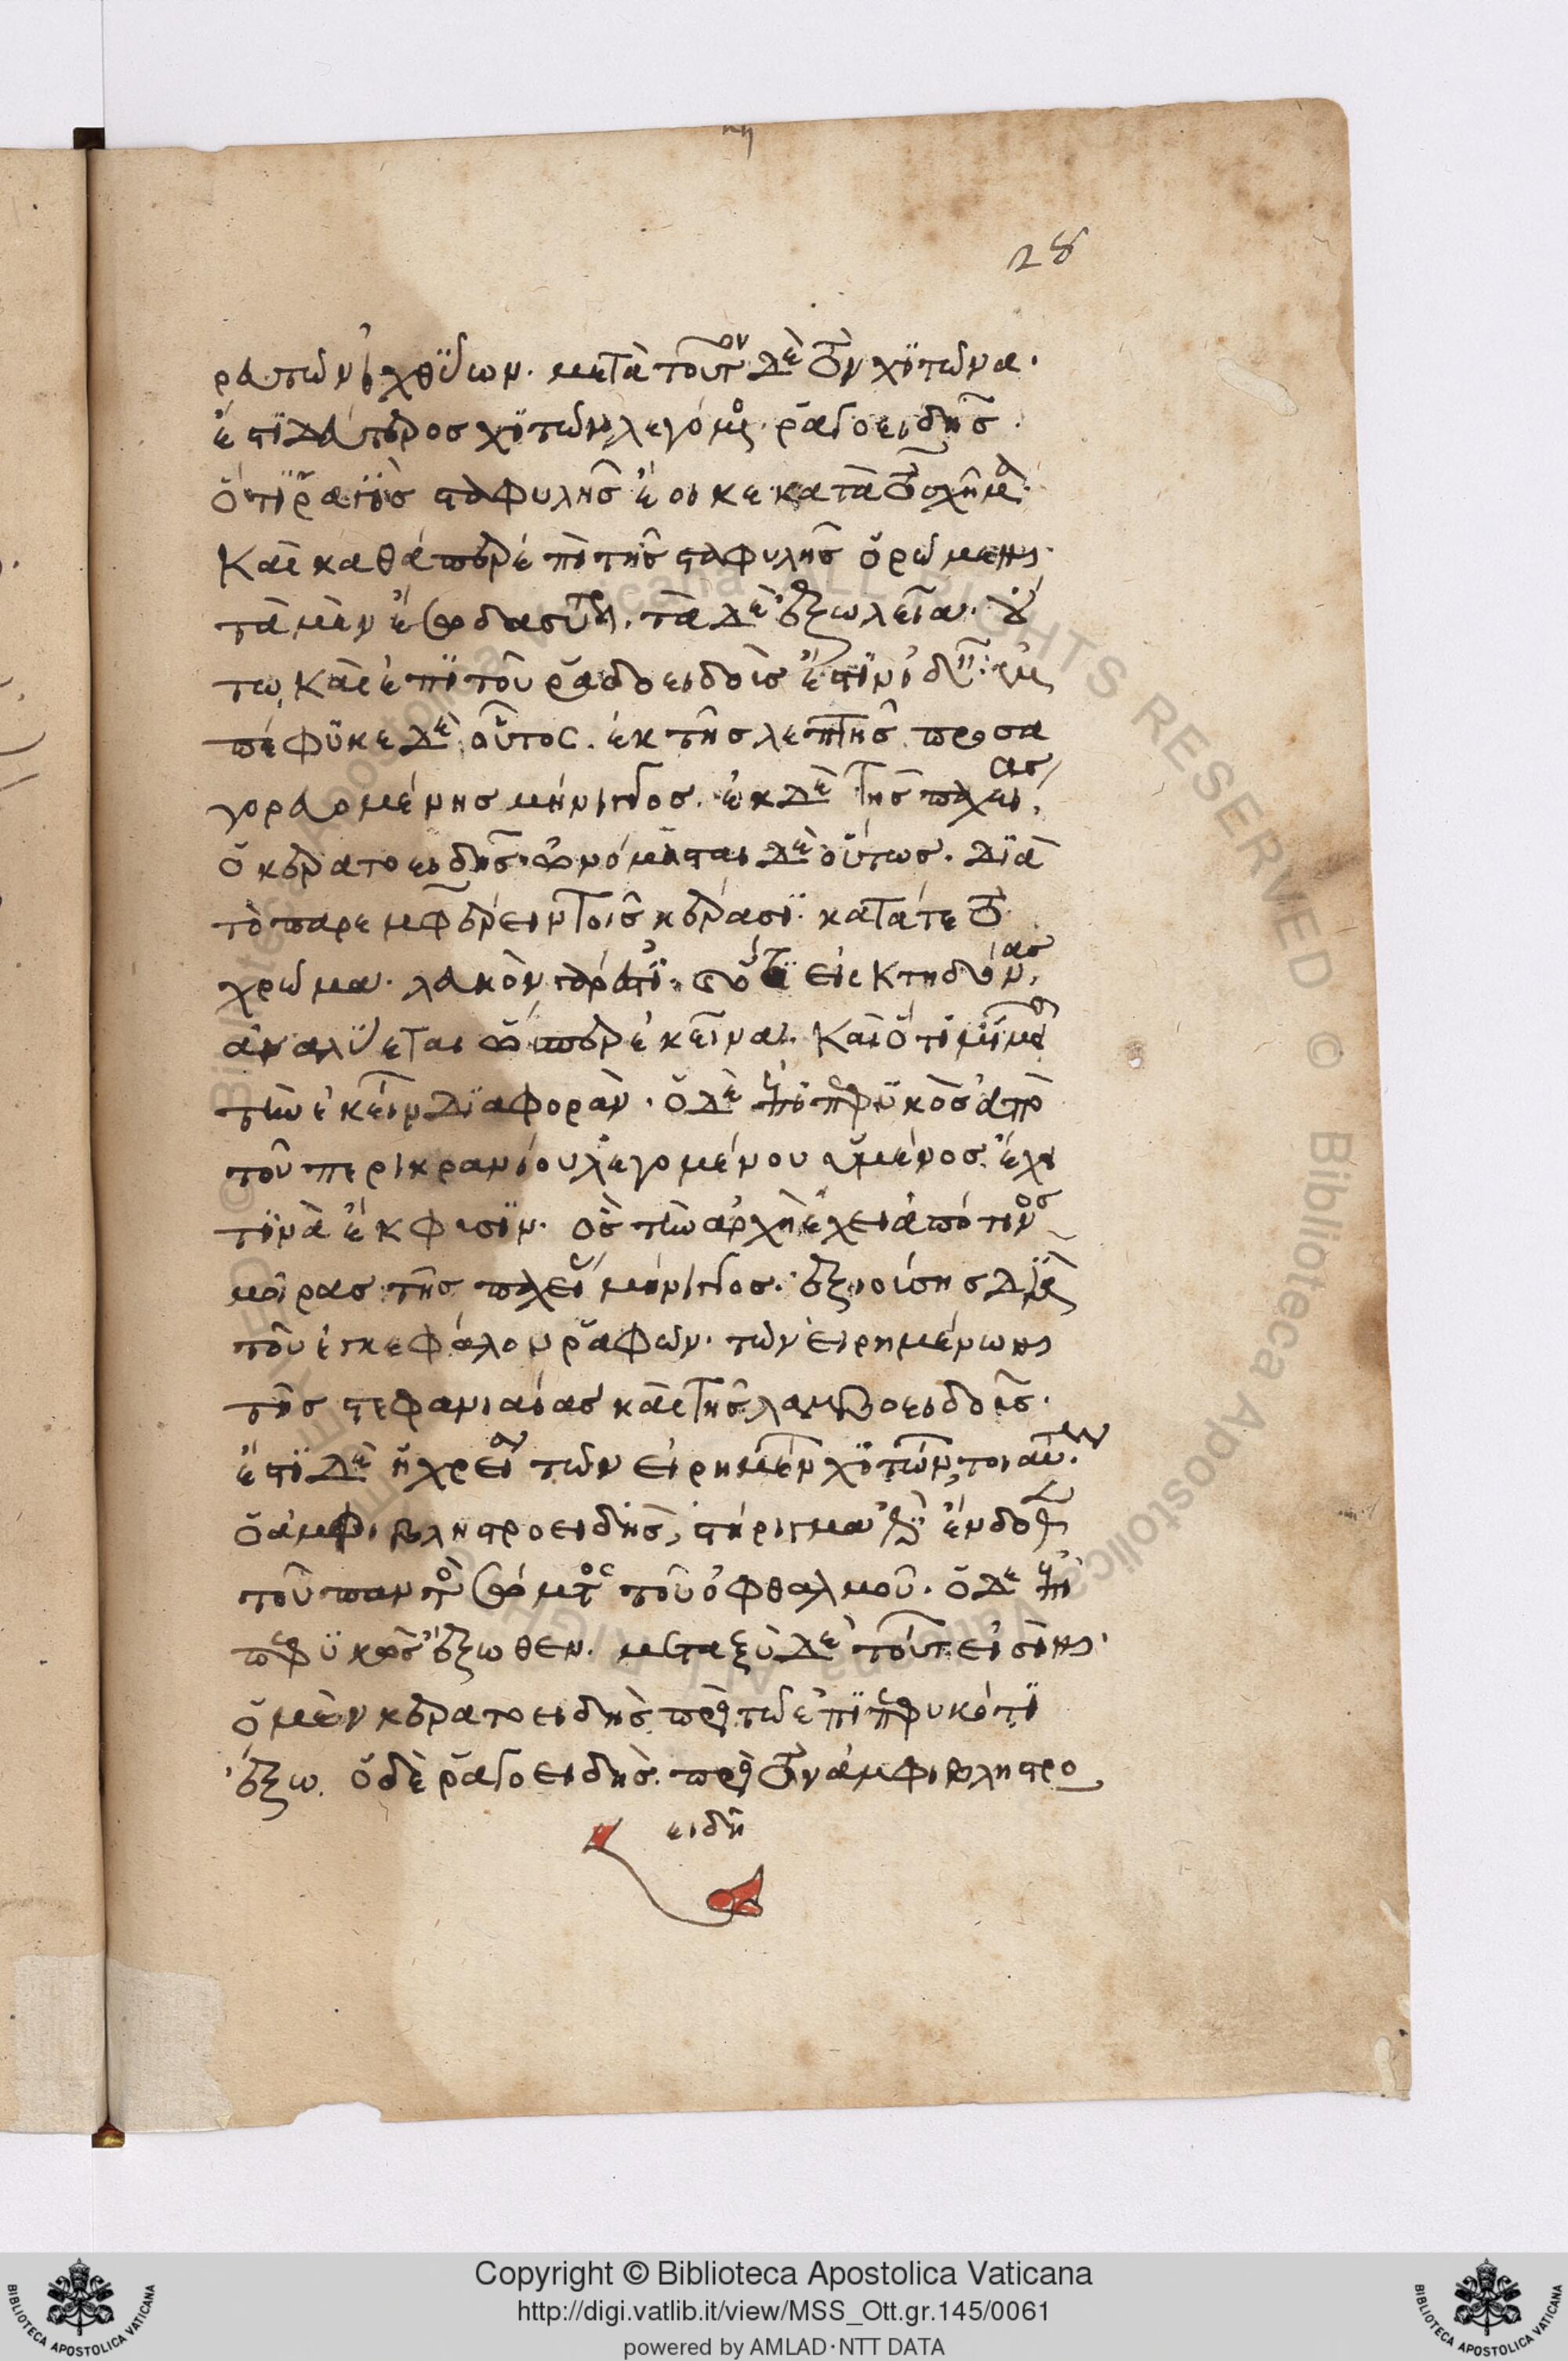 28
ρα τῶν ἰχθύων. μετὰ τοῦτον δὲ τὸν χϊτῶνα.
ἔστι δεύτερος χϊτὼν λεγόμενος ῥαγοειδής.
ὅτι ῥαγὸς σταφυλῆς ἔοικε κατὰ τὸ σχῆμα.
Καὶ καθάπερ ἐπὶ τῆς σταφυλῆς ὁρῶμεν.
τὰ μὲν ἔσω δασύτερα. τὰ δὲ ἔξω λεῖα. οὕ
τω καὶ ἐπὶ τοῦ ῥαγοειδοῦς ἔστιν ἰδεῖν.
πέφυκε δὲ οὗτος. ἐκ τῆς λεπτῆς προσα
γορευομένης μήνιγγος. ἐκ δὲ τῆς παχείας,
ὁ κερατοειδής. ὠνόμασται δὲ οὕτως. διὰ
τὸ παρεμφέρειν τοῖς κέρασϊ. κατά τε τὸ
χρῶμα. λευκὸν γάρ ἐστι. καὶ ὅτι εἰς κτηδόνας
ἀναλύεται ὥσπερ ἐκεῖνα. Καὶ ὅτι μιμεῖται
τὴν ἐκείνων διαφοράν. ὁ δὲ ἐπιπεφυκὸς ἀπὸ
τοῦ περικρανίου λεγομένου ὑμένος. ἔχει
τινὰ ἔκφυσιν. ὃς τὴν ἀρχὴν ἔχει ἀπό τινος
μοίρας τῆς παχείας μήνιγγος. ἐξιούσης διὰ
τοῦ ἐγκεφάλου ῥαφῶν. τῶν εἰρημένων
τῆς στεφανιαίας καὶ τῆς λαμβοειδοῦς.
ἔστι δὲ ἡ χρεία τῶν εἰρημένων χϊτώνων τοιαύτη.
ὁ ἀμφιβληστροειδής, στήριγμα ἐστὶν ἔνδοθεν
τοῦ παντὸς σώματος τοῦ ὀφθαλμοῦ. ὁ δὲ ἐπι
πεφυκὼς ἔξωθεν. μεταξὺ δὲ τούτων εἰσὶν.
ὁ μὲν κερατοειδὴς πρὸς τῷ ἐπιπεφυκότι
ἔξω. ὁ δὲ ῥαγοειδὴς. πρὸς τὸν ἀμφιβληστρο
ειδῆ
Copyright © Biblioteca Apostolica Vaticana
http://digi.vatlib.it/view/MSS_Ott.gr.145/0061
powered by AMLAD·NTT DATA